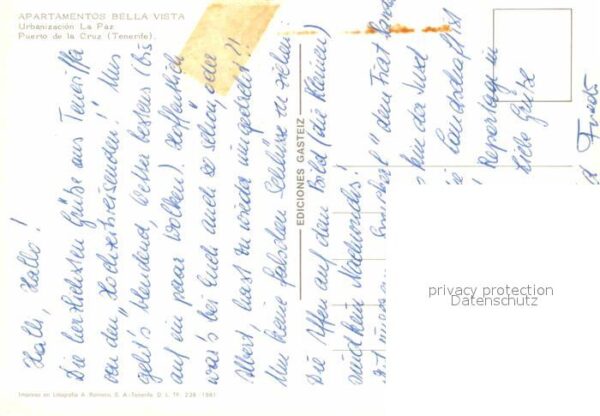 APARTAMENTOS BELLA VISTA
Urbanización La Paz
Puerto de la Cruz (Tenerife).
Halli, Hallo!
Die herzlichsten Grüße aus Teneriffa
von den "Hochzeitsreisenden!" Uns
geht's blendend, Wetter bestens (bis
auf ein paar Wolken). Hoffentlich
war's bei Euch auch so schön, oder
Albert, hast Du wieder umgedreht?!
Um keine falschen Schlüsse zu ziehen:
Die Affen auf dem Bild (die Kleinen)
sind kein Nachwuchs!
" dem Trat
der Insel
Landschaftlich
Reportage in
Liebe Grüße
EDICIONES GASTEIZ
privacy protection
Datenschutz
Impreso en Litografía A. Romero, S. A.-Tenerife D. L. TF. 238 - 1981